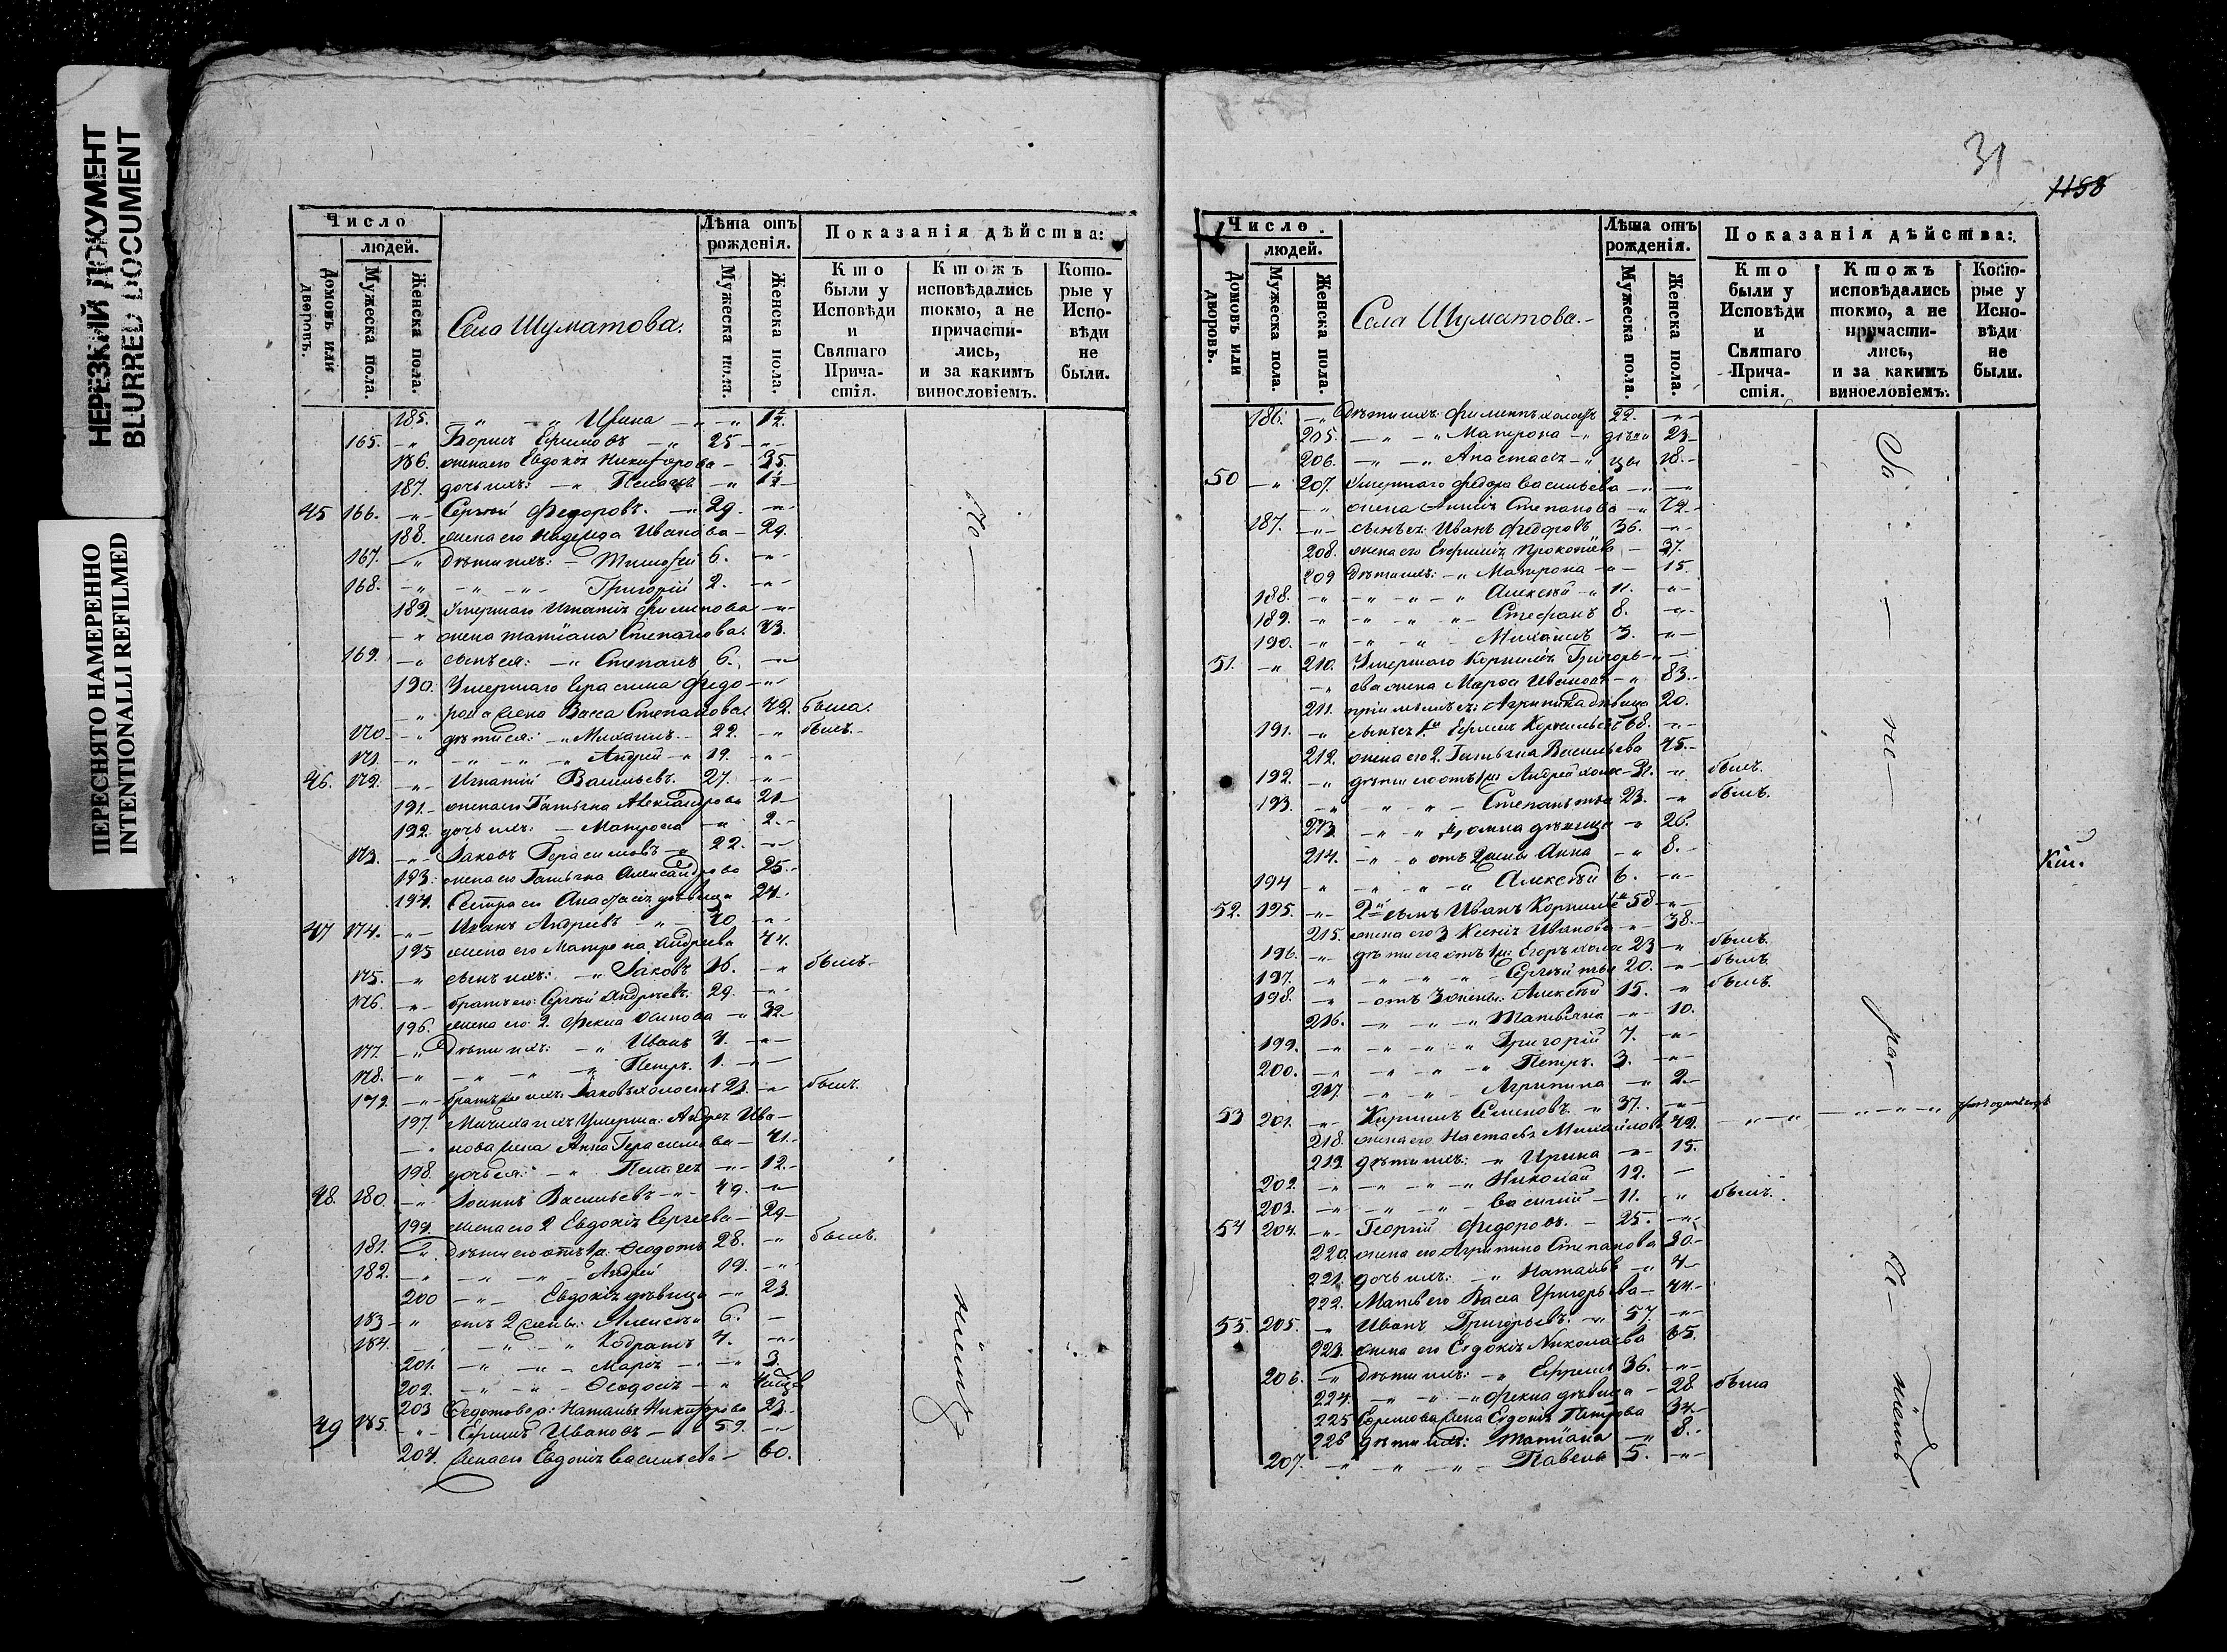 НЕРЕЗКИЙ ДОКУМЕНТ
BLURRED DOCUMENT
ПЕРЕСНЯТО НАМЕРЕННО
INTENTIONALLI REFILMED
Число
людей.
Домовъ или дворовъ.
Мужеска пола.
Женска пола.
Села Шуматова.
Лѣта отъ рожденія.
Мужеска пола.
Женска пола.
Показанія дѣйства:
Кто были у Исповѣди и Святаго Причастія.
Ктожъ исповѣдались токмо, а не причастились, и за какимъ винословіемъ.
Которые у Исповѣди не были.
185. " - " Ирина - " 1½.
165. - " Борисъ Ефимовъ - " 25 - " -
186. жена его Евдокія Никифорова - 35.
187. дочь ихъ: - " Пелагея - " 1½
45 166. - " - Сергѣй Федоровъ. - " 29. - " -
188. жена его Надежда Иванова - 29.
167. - " Дѣти ихъ: - Тимофей 6. - " -
168. - " - " - " - Григорій 2. - " -
189. Умершаго Игнатія Филипова - " -
- " жена Татіана Степанова. 73.
169. - " сынъ ея: - " Степанъ 6. - " -
190. Умершаго Герасима Федо - " -
- " рова жена Васса Степанова. 42. была.
170. - " дѣти ея: - " Михаилъ. - 22. - " былъ. -
171. - " - " - " - " Андрей - " 19. - " -
46. 172. - " - Игнатій Васильевъ. 27. - " -
191. - жена его Татьяна Александрова 21 -
192. дочь ихъ: - Матрона - " 2. -
173. - " - Яковъ Герасимовъ - " 22. - " -
193. жена его Татьяна Александрова 25. -
194. Сестра его Анастасія дѣвица 24. -
47 174. - " - Иванъ Андреевъ - " - 40 - " -
195 жена его Матрона Андреева 44.
175. - " сынъ ихъ: - " Яковъ 16. - " былъ. -
176. - " - братъ его: Сергѣй Андреевъ. 29. - " -
196. жена его 2. Фекла Осипова - " 32 -
177. - " Дѣти ихъ: - " Иванъ 4. - " -
178. - " - " - " - " Петръ. 1. - " -
179. - " - братъ же ихъ Яковъ холостъ 23. - " - былъ.
197. Мачиха ихъ Умерша: Андрея Ива -
- " нова жена Анна Герасимова - 41. -
198. дочь ея: - " Пелагея - " - 12. -
48. 180. - " Іоаннъ Васильевъ - " - 49. - " -
199. жена его 2 Евдокія Сергеева - 29 -
181. - " Дѣти его отъ 1й: Феодотъ 28. - " былъ.
182. - " - " - " - Андрей 19. - " -
200 - " - Евдокія дѣвица - " 23.
183 - " отъ 2 жены: Алексѣй 6. -
184. - " - " Кодратъ 4. - " -
201. - " - " - Марія - " - " 3.
202. - " - " - Феодосія - "
203 Федотова ж: Наталья Никифорова 23. -
49 185. - " - Ефимъ Ивановъ - " 59. - " -
204. Жена его Евдокія Васильева - 60.
31
1188
Число
людей.
Домовъ или дворовъ.
Мужеска пола.
Женска пола.
Села Шуматова. -
Лѣта отъ рожденія.
Мужеска пола.
Женска пола.
Показанія дѣйства:
Кто были у Исповѣди и Святаго Причастія.
Ктожъ исповѣдались токмо, а не причастились, и за какимъ винословіемъ.
Которые у Исповѣди не были.
186. - " Дѣти ихъ: Филиппъ холостъ 22. - " -
205. - " - " Матрона - " дѣви 23 -
206. - " - " Анастасія - " цы 18. -
50 - " 207. Умершаго Федора Васильева - " - " -
- " жена Степанова - " 72. -
187. - " - сынъ ея: Иванъ Федоровъ 36. - " -
208. жена его Евфимія Прокопіева - 37.
209 Дѣти ихъ: - " Матрона - " - 15.
188. - " - " - " - " Алексѣй - " 11. - " -
189. - " - " - " - Стефанъ 8. - " -
190. - " - " - " Михаилъ 3. - " -
51. - " 210. Умершаго Корнилія Григорь - " -
- " ева жена Марфа Иванова - " 83. -
211. Агрипина дѣвица 20.
191. - " сынъ ея 1й Ефимъ Корнильевъ 68. - " -
212. жена его 2. Татьяна Васильева 45. -
192. - " дѣти его отъ 1й Андрей холос - 31. - " былъ.
193. - " - " - " - Степанъ 23. - " былъ.
213. - " - " Домна дѣвица - " 26.
214. - " - " отъ 2 жены Анна - " 8. -
194 - " - " - " - " Алексѣй 6. - " -
52. 195. - " - 2й сынъ Иванъ Корниль 58 - " -
215. жена его 3 Ксенія Иванова - " - 38. -
196. - " - дѣти его отъ 1й: Егоръ холос 23 - " былъ.
197. - " - " - " - Сергѣй 20. - " - былъ
198. - " - отъ 3 жены: Алексѣй 15. - " былъ.
216. - " - " - " Татьяна - " - 10.
199. - " - " - " - " Григорій 7. - " -
200. - " - " - " - " Петръ. 3. - " -
217. - " - " Агрипина - " 2. -
53 201. - " - Кирилъ Семеновъ. - " 37. - " -
218. жена его Настасья Михайлова 42.
219 дѣти ихъ: - " Ирина - " - 15.
202. - " - " - " - " Николай 12. -
203. - " - " - " - Василій - 11. - " былъ.
54 204. - " - Георгій Федоровъ. - 25. - " -
220. жена его Агрипина Степанова 30. -
221. дочь ихъ: - " Наталья - " 4 -
222. Мать его Васса Григорьева - 44. -
55. 205. - " Иванъ Григорьевъ. - " 57. - " -
223. жена его Евдокія Николаева 65.
206. - " Дѣти ихъ: - " Ефремъ 36. - " -
224. - " - " - " Фекла дѣвица - 28. была
225 Ефремова жена Евдокія Петрова 34. -
226 дѣти ихъ: Татіана - " 8. -
207. - " - " - " - Павелъ 5. - " -